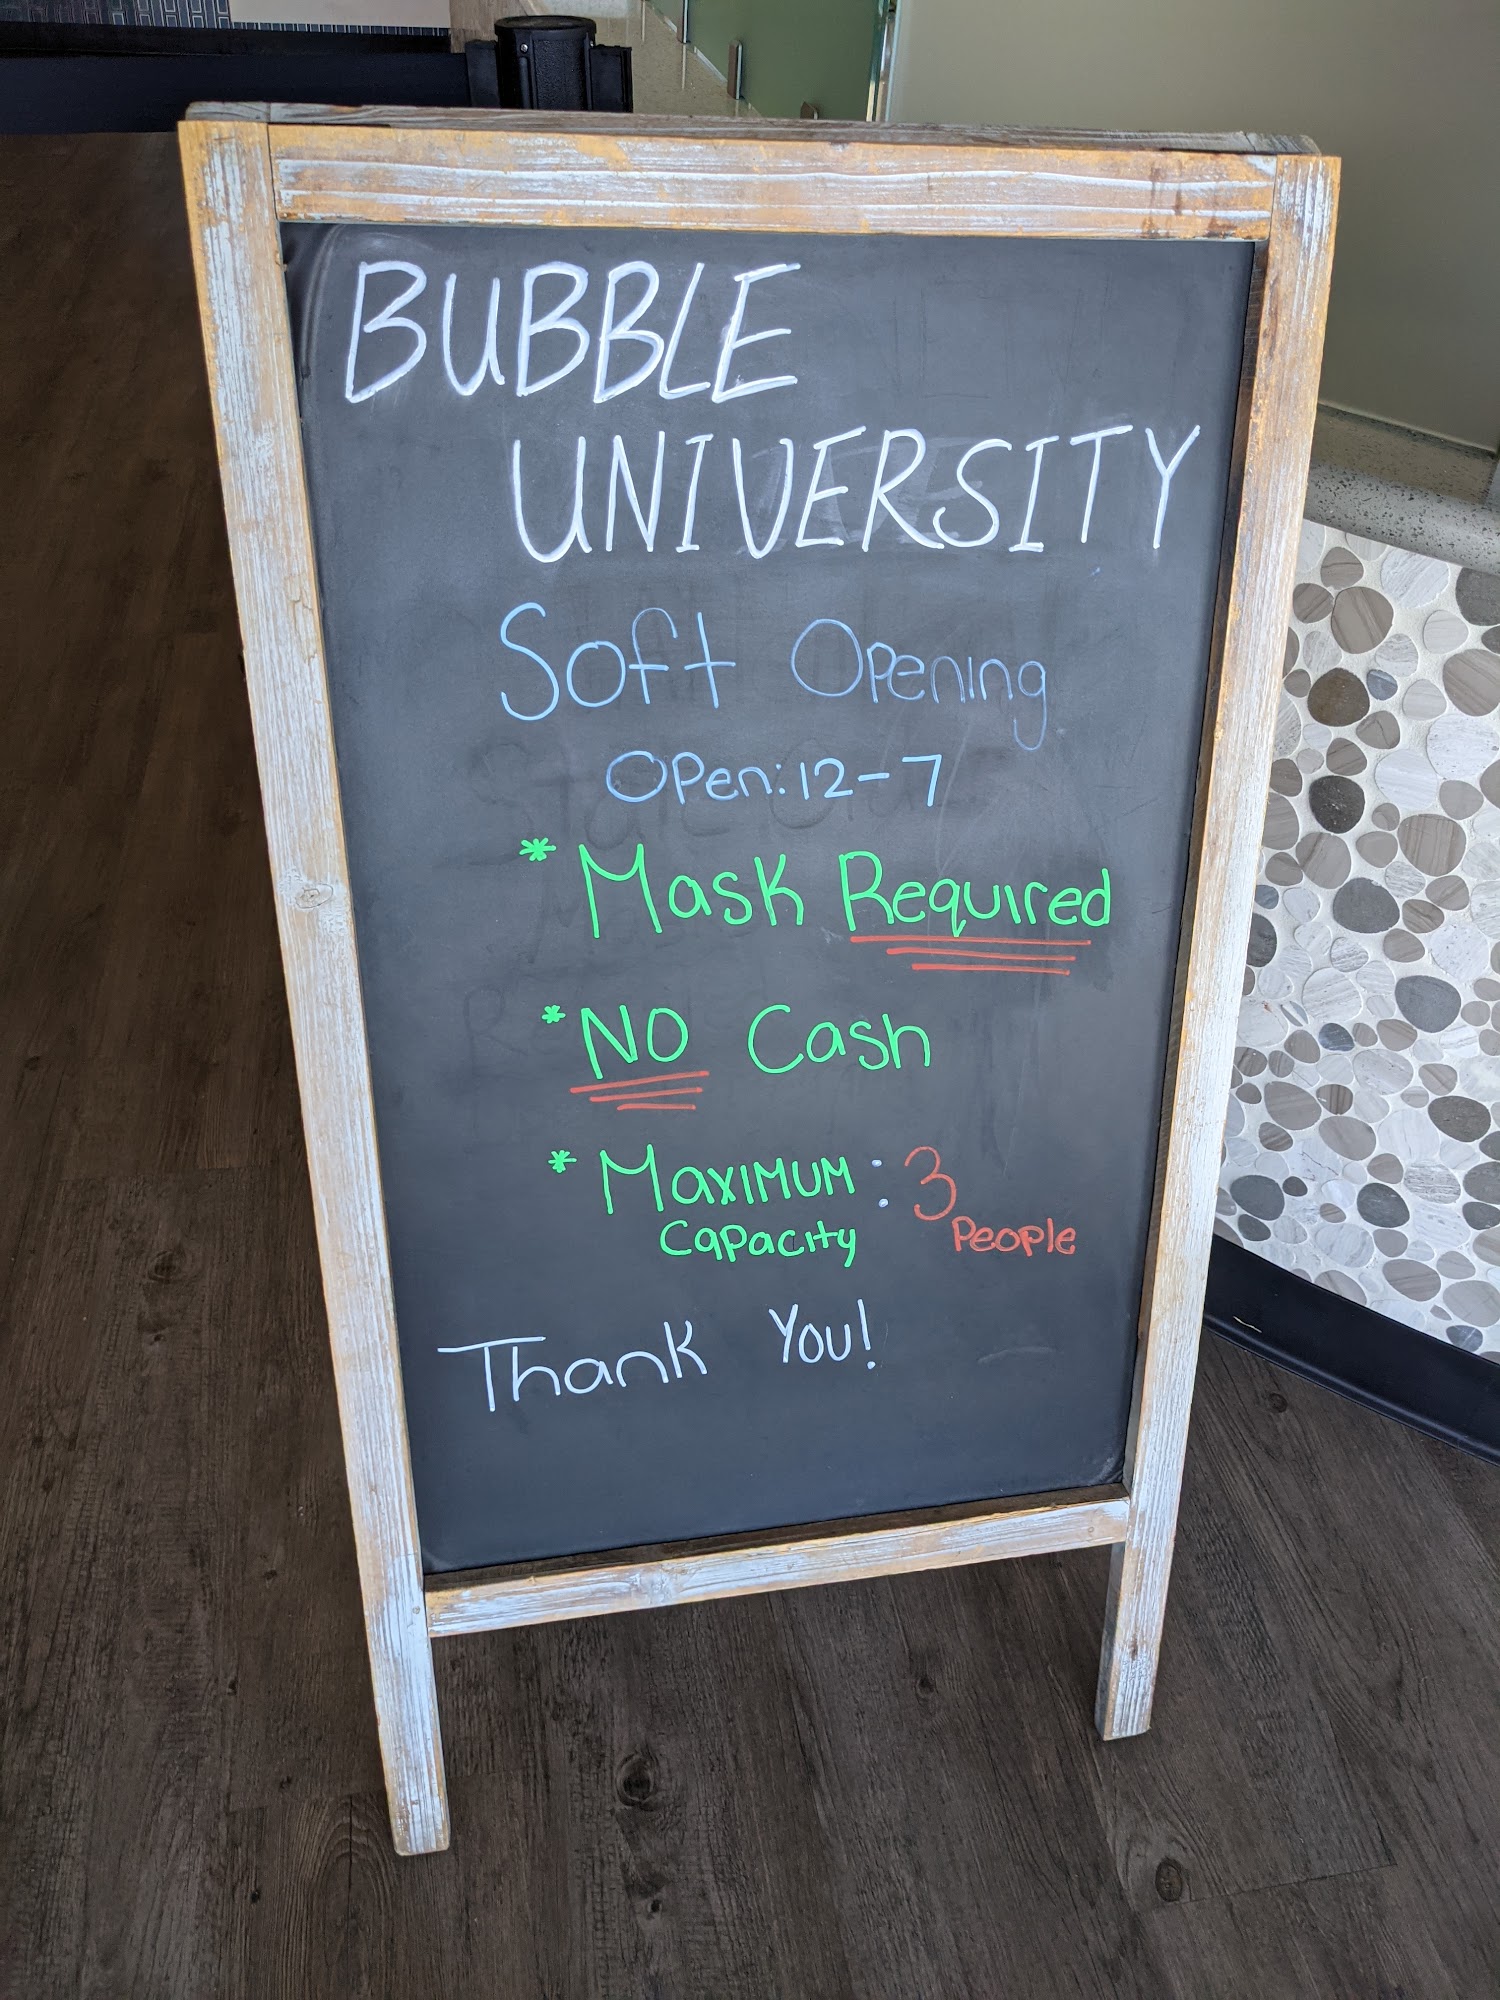 BUBBLE
UNIVERSITY
Soft Opening
Open: 12-7
* Mask Required
* NO Cash
* MaxIMUM : 3
Capacity People
Thank You!